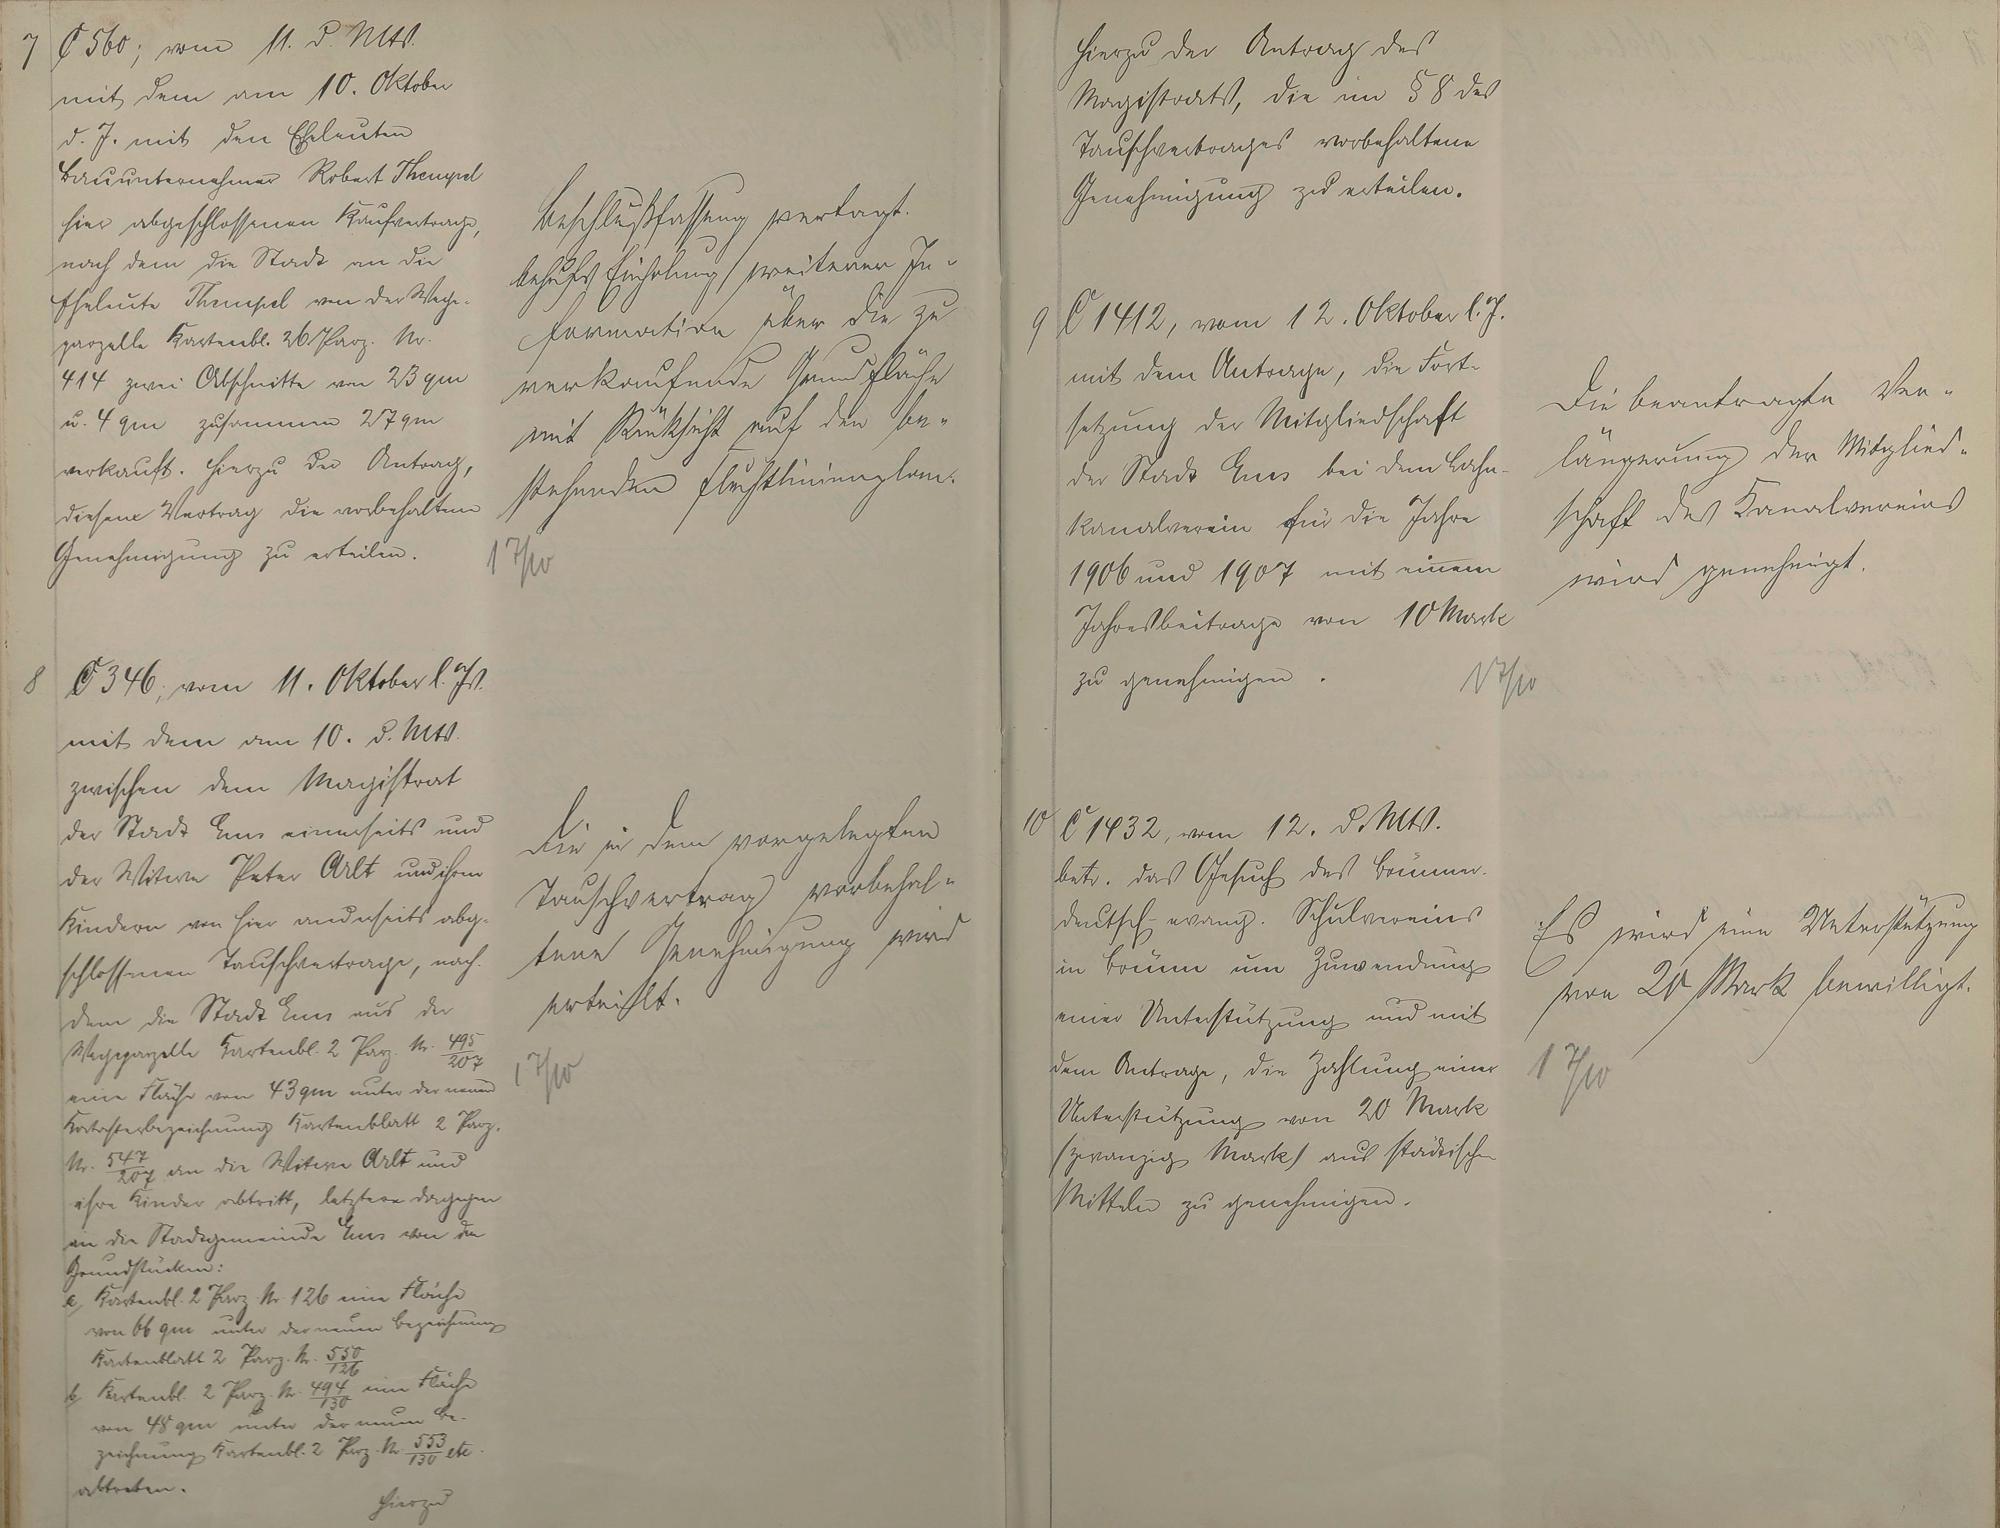 7 C 560; vom 11. d. Mts.
mit dem am 10. Oktober
d. J. mit den Eheleuten
Bauunternehmer Robert
hier abgeschlossenen Kaufvertrage,
nach dem die Stadt an die
Eheleute von der Wege-
parzelle Kartenbl. 26 Parz. Nr.
414 zwei Abschnitte von 23 qm
u. 4 qm zusammen 27 qm
verkauft. Hierzu der Antrag,
diesem Vertrag die vorbehaltene
Genehmigung zu erteilen.
Beschlußfassung vertagt.
behufs Einholung weiterer In-
formation über die zu
verkaufende Grundfläche
mit Rücksicht auf den be-
stehenden Fluchtlinienplan.
17/10
8 C 346, vom 11. Oktober l. Js.
mit dem am 10. d. Mts.
zwischen dem Magistrat
der Stadt Ems einerseits und
der Witwe Peter Arlt und ihren
Kindern von hier anderseits abge-
schlossenen Tauschvertrage, nach
dem die Stadt Ems aus der
Wegeparzelle Kartenbl. 2 Parz. Nr. 495/207
eine Fläche von 43 qm unter der neuen
Katasterbezeichnung Kartenblatt 2 Parz.
Nr. 547/207 an die Witwe Arlt und
ihre Kinder abtritt, letztere dagegen
an die Stadtgemeinde Ems von den
Grundstücken:
a, Kartenbl. 2 Parz. Nr. 126 eine Fläche
von 66 qm unter der neuen Bezeichnung
Kartenblatt 2 Parz. Nr. 550/126
b, Kartenbl. 2 Parz. Nr. 494/130 eine Fläche
von 48 qm unter der neuen Be-
zeichnung Kartenbl. 2 Parz. Nr. 553/130 etc.
abtreten.
Hierzu
Die in dem vorgelegten
Tauschvertrag vorbehal-
tene Genehmigung wird
erteilt.
17/10
Hierzu der Antrag des
Magistrats, die im § 8 des
Tauschvertrages vorbehaltene
Genehmigung zu erteilen.
9 C 1412, vom 12. Oktober l. J.
mit dem Antrage, die Fort-
setzung der Mitgliedschaft
der Stadt Ems bei dem Lahn-
kanalverein für die Jahre
1906 und 1907 mit einem
Jahresbeitrage von 10 Mark
zu genehmigen.
Die beantragte Ver-
längerung der Mitglied-
schaft des Kanalvereins
wird genehmigt.
17/10
10 C 1432, vom 12. d. Mts.
betr. das Gesuch des Brünner
deutsch-evang. Schulvereins
in Brünn um Zuwendung
einer Unterstützung und mit
dem Antrage, die Zahlung einer
Unterstützung von 20 Mark
(zwanzig Mark) aus städtischen
Mitteln zu genehmigen.
Es wird eine Unterstützung
von 20 Mark bewilligt.
17/10